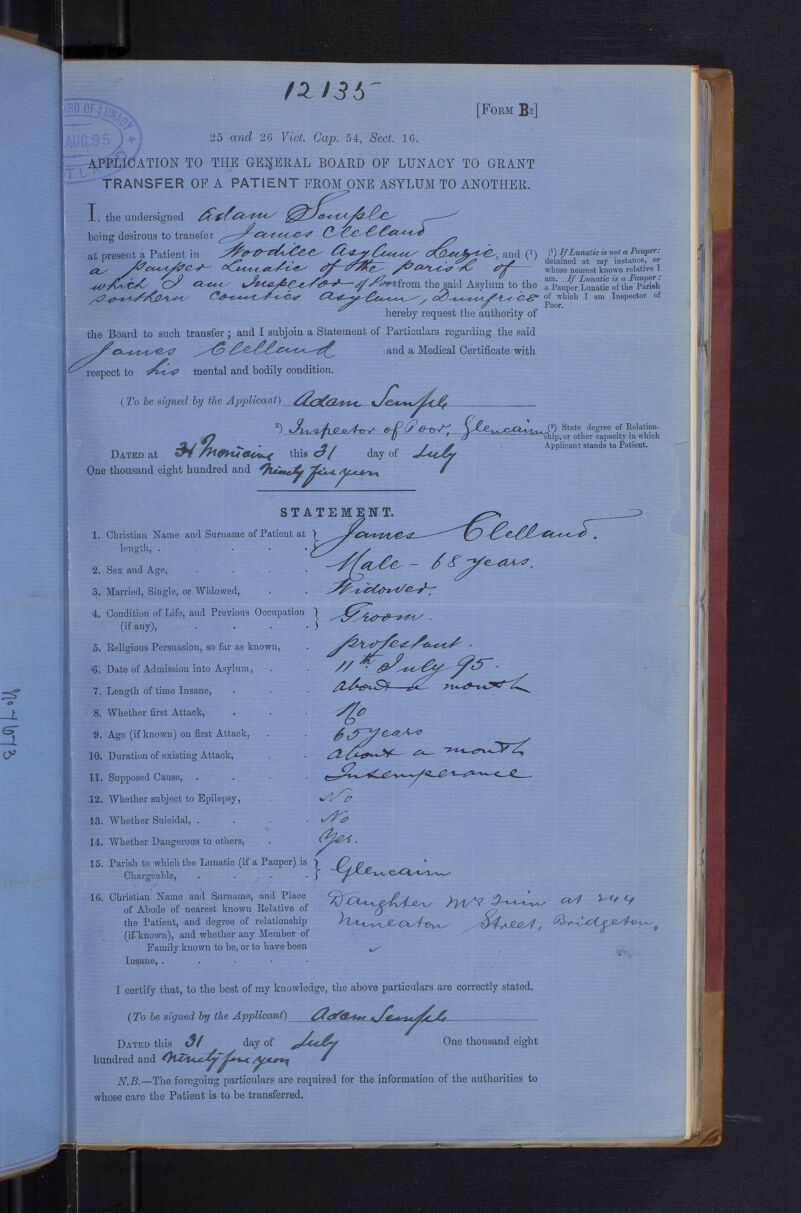 12135
[FORM B2]
RD OF LUNACY
AUG.95
TL
25 and 26 Vict. Cap. 54, Sect. 16.
APPLICATION TO THE GENERAL BOARD OF LUNACY TO GRANT
TRANSFER OF A PATIENT FROM ONE ASYLUM TO ANOTHER.
I, the undersigned Adam Semple
being desirous to transfer James Clelland
at present a Patient in Woodilee Asylum Lenzie, and (1)
a Pauper Lunatic of the parish of
which I am Inspector of Poor from the said Asylum to the
Southern Counties Asylum, Dumfries
hereby request the authority of
the Board to such transfer; and I subjoin a Statement of Particulars regarding the said
James Clelland and a Medical Certificate with
respect to his mental and bodily condition.
(1) If Lunatic is not a Pauper:
detained at my instance, or
whose nearest known relative I
am. If Lunatic is a Pauper:
a Pauper Lunatic of the Parish
of which I am Inspector of
Poor.
(To be signed by the Applicant) Adam Semple
2) Inspector of Poor, Glencairn
(2) State degree of Relation-
ship, or other capacity in which
Applicant stands to Patient.
DATED at Moniaive this 31 day of July
One thousand eight hundred and Ninety five years
STATEMENT.
1. Christian Name and Surname of Patient at length, . James Clelland.
2. Sex and Age, Male - 68 years.
3. Married, Single, or Widowed, Widowed.
4. Condition of Life, and Previous Occupation (if any), Groom.
5. Religious Persuasion, so far as known, protestant.
6. Date of Admission into Asylum, 11th July 95.
7. Length of time Insane, about a month
8. Whether first Attack, No
9. Age (if known) on first Attack, 65 years
10. Duration of existing Attack, about a month
11. Supposed Cause, Intemperance
12. Whether subject to Epilepsy, No
13. Whether Suicidal, No
14. Whether Dangerous to others, Yes.
15. Parish to which the Lunatic (if a Pauper) is Chargeable, Glencairn
16. Christian Name and Surname, and Place
of Abode of nearest known Relative of
the Patient, and degree of relationship
(if known), and whether any Member of
Family known to be, or to have been
Insane, .
Daughter Mrs at 244
Nuneaton Street, Bridgeton.
I certify that, to the best of my knowledge, the above particulars are correctly stated.
(To be signed by the Applicant) Adam Semple
DATED this 31 day of July One thousand eight
hundred and Ninety five years
N.B.—The foregoing particulars are required for the information of the authorities to
whose care the Patient is to be transferred.